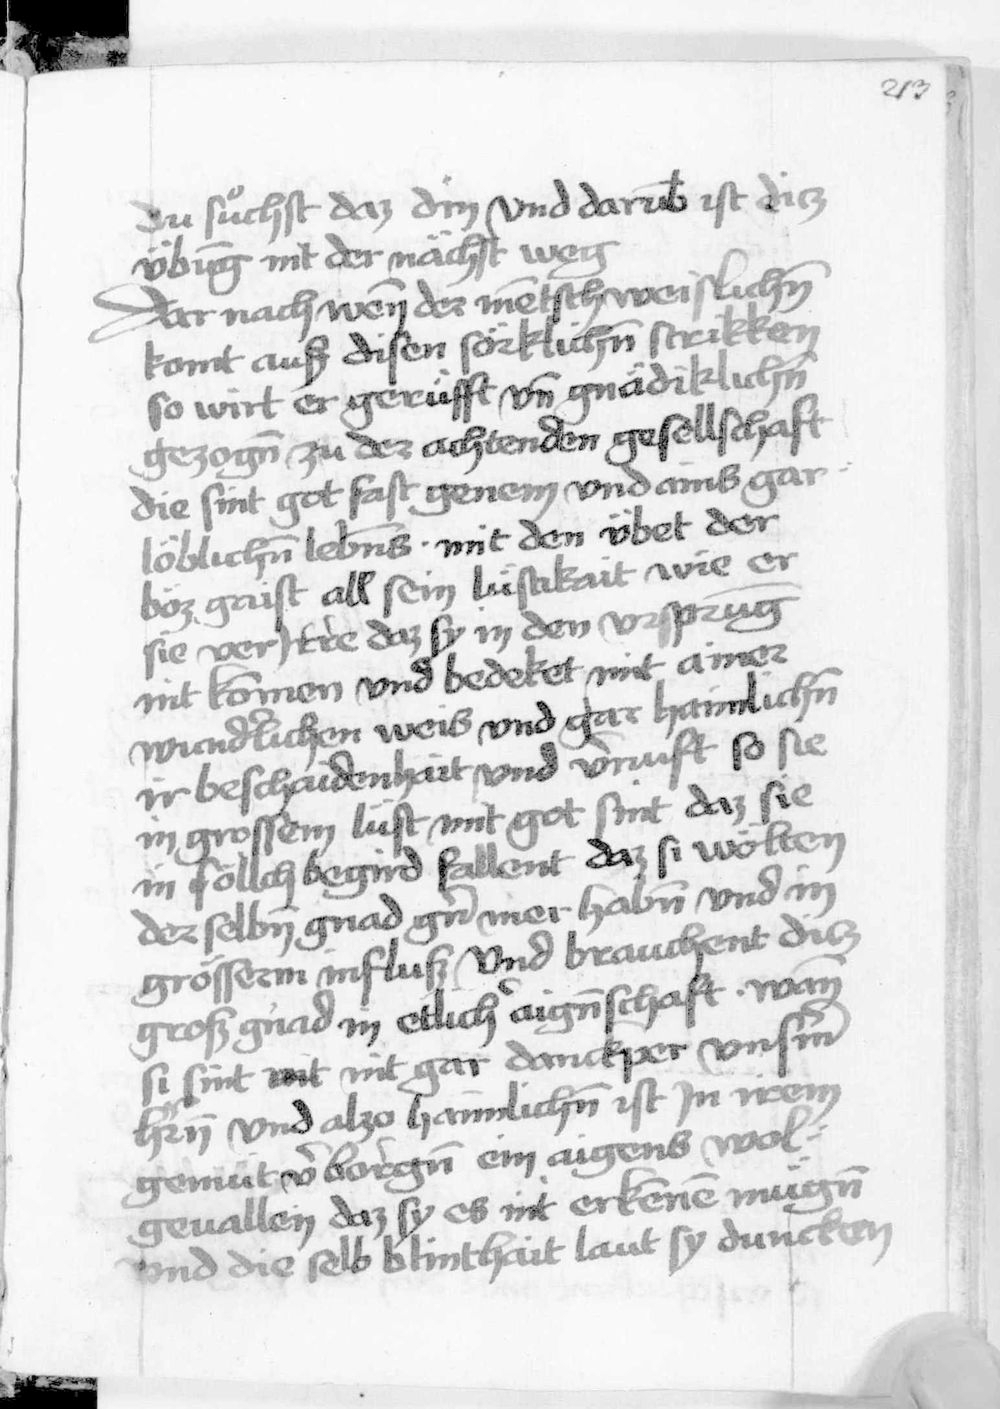 213
du sůchst daz din vnd darūb ist ditz
übūg nit der nächst weg
Dar nach wen̄ der mētsch weislichn̄
komt auß disen sörklichn̄ strikken
so wirt er gerüfft vn̄ gnädiklichn̄
gezogn̄ zu der achtenden gesellschaft
die sint got fast genem vnd ains gar
löblichn̄ lebn̄s · mit den übet der
böz gaist all sein lüstikait wie er
sie verirre daz sy in den vrsprūg
nit kōmen vnd bedeket mit ainer
wundˀlichen weis vnd gar haimlichn̄
ir beschaidenhait vnd vˀnuft so sie
in grossem lüst mit got sint daz sie
in söllch begird fallent daz si wölten
der selbn̄ gnad gˀn mer habn̄ vnd in
grösserm influß Vnd brauchent ditz
groß gnad in etlichˀ aign̄schaft · wan̄
si sint nit gar danckper vnsˀm
hˀrn̄ vnd alzo haimlichn̄ ist Jn irem
gemüt vˀborgn̄ ein aigens wol-
geuallen daz sy es nit erkēnē mügn̄
vnd die selb blinthait laut sy duncken